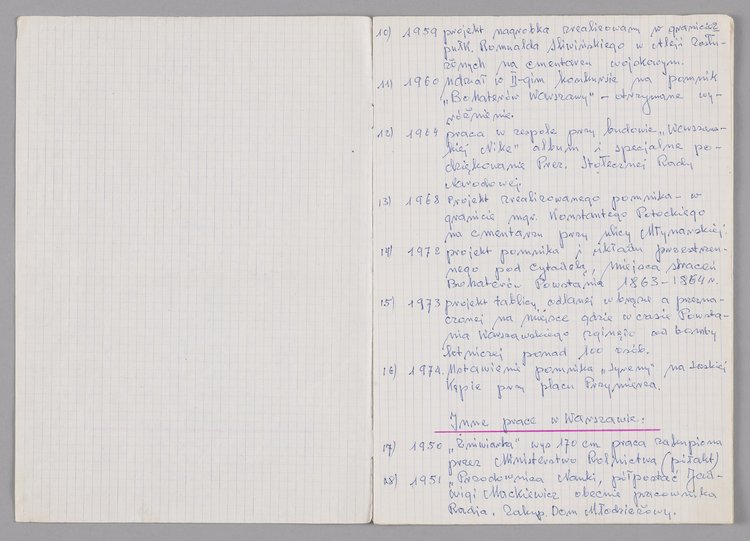 10) 1959 projekt nagrobka zrealizowany w granicie
pułk. Romualda Śliwińskiego w Aleji Zasłu-
żonych na cmentarzu wojskowym.
11) 1960 udział w II-gim konkursie na pomnik
„Bohaterów Warszawy" – otrzymane wy-
różnienie.
12) 1964 praca w zespole przy budowie „Warszaw-
skiej Nike" album i specjalne po-
dziękowanie Prez. Stołecznej Rady
Narodowej.
13) 1968 Projekt zrealizowanego pomnika – w
granicie mgr. Konstantego Potockiego
na cmentarzu przy ulicy Młynarskiej
14) 1972 projekt pomnika i układu przestrzen-
nego pod cytadelą, Miejsca straceń
Bohaterów Powstania 1863–1864 r.
15) 1973 projekt tablicy odlanej w brązie a przezna-
czonej na miejsce gdzie w czasie Powsta-
nia Warszawskiego zginęło od bomby
lotniczej ponad 100 osób.
16) 1974. Ustawienie pomnika „Syreny" na Saskiej
Kępie przy placu Przymierza.
Inne prace w Warszawie.
17) 1950 „Żniwiarka" wys 170 cm praca zakupiona
przez Ministerstwo Rolnictwa (półakt)
18) 1951 „Przodownica Nauki, półpostać Jad-
wigi Mackiewicz obecnie pracownika
Radja. Zakup. Dom Młodzieżowy.